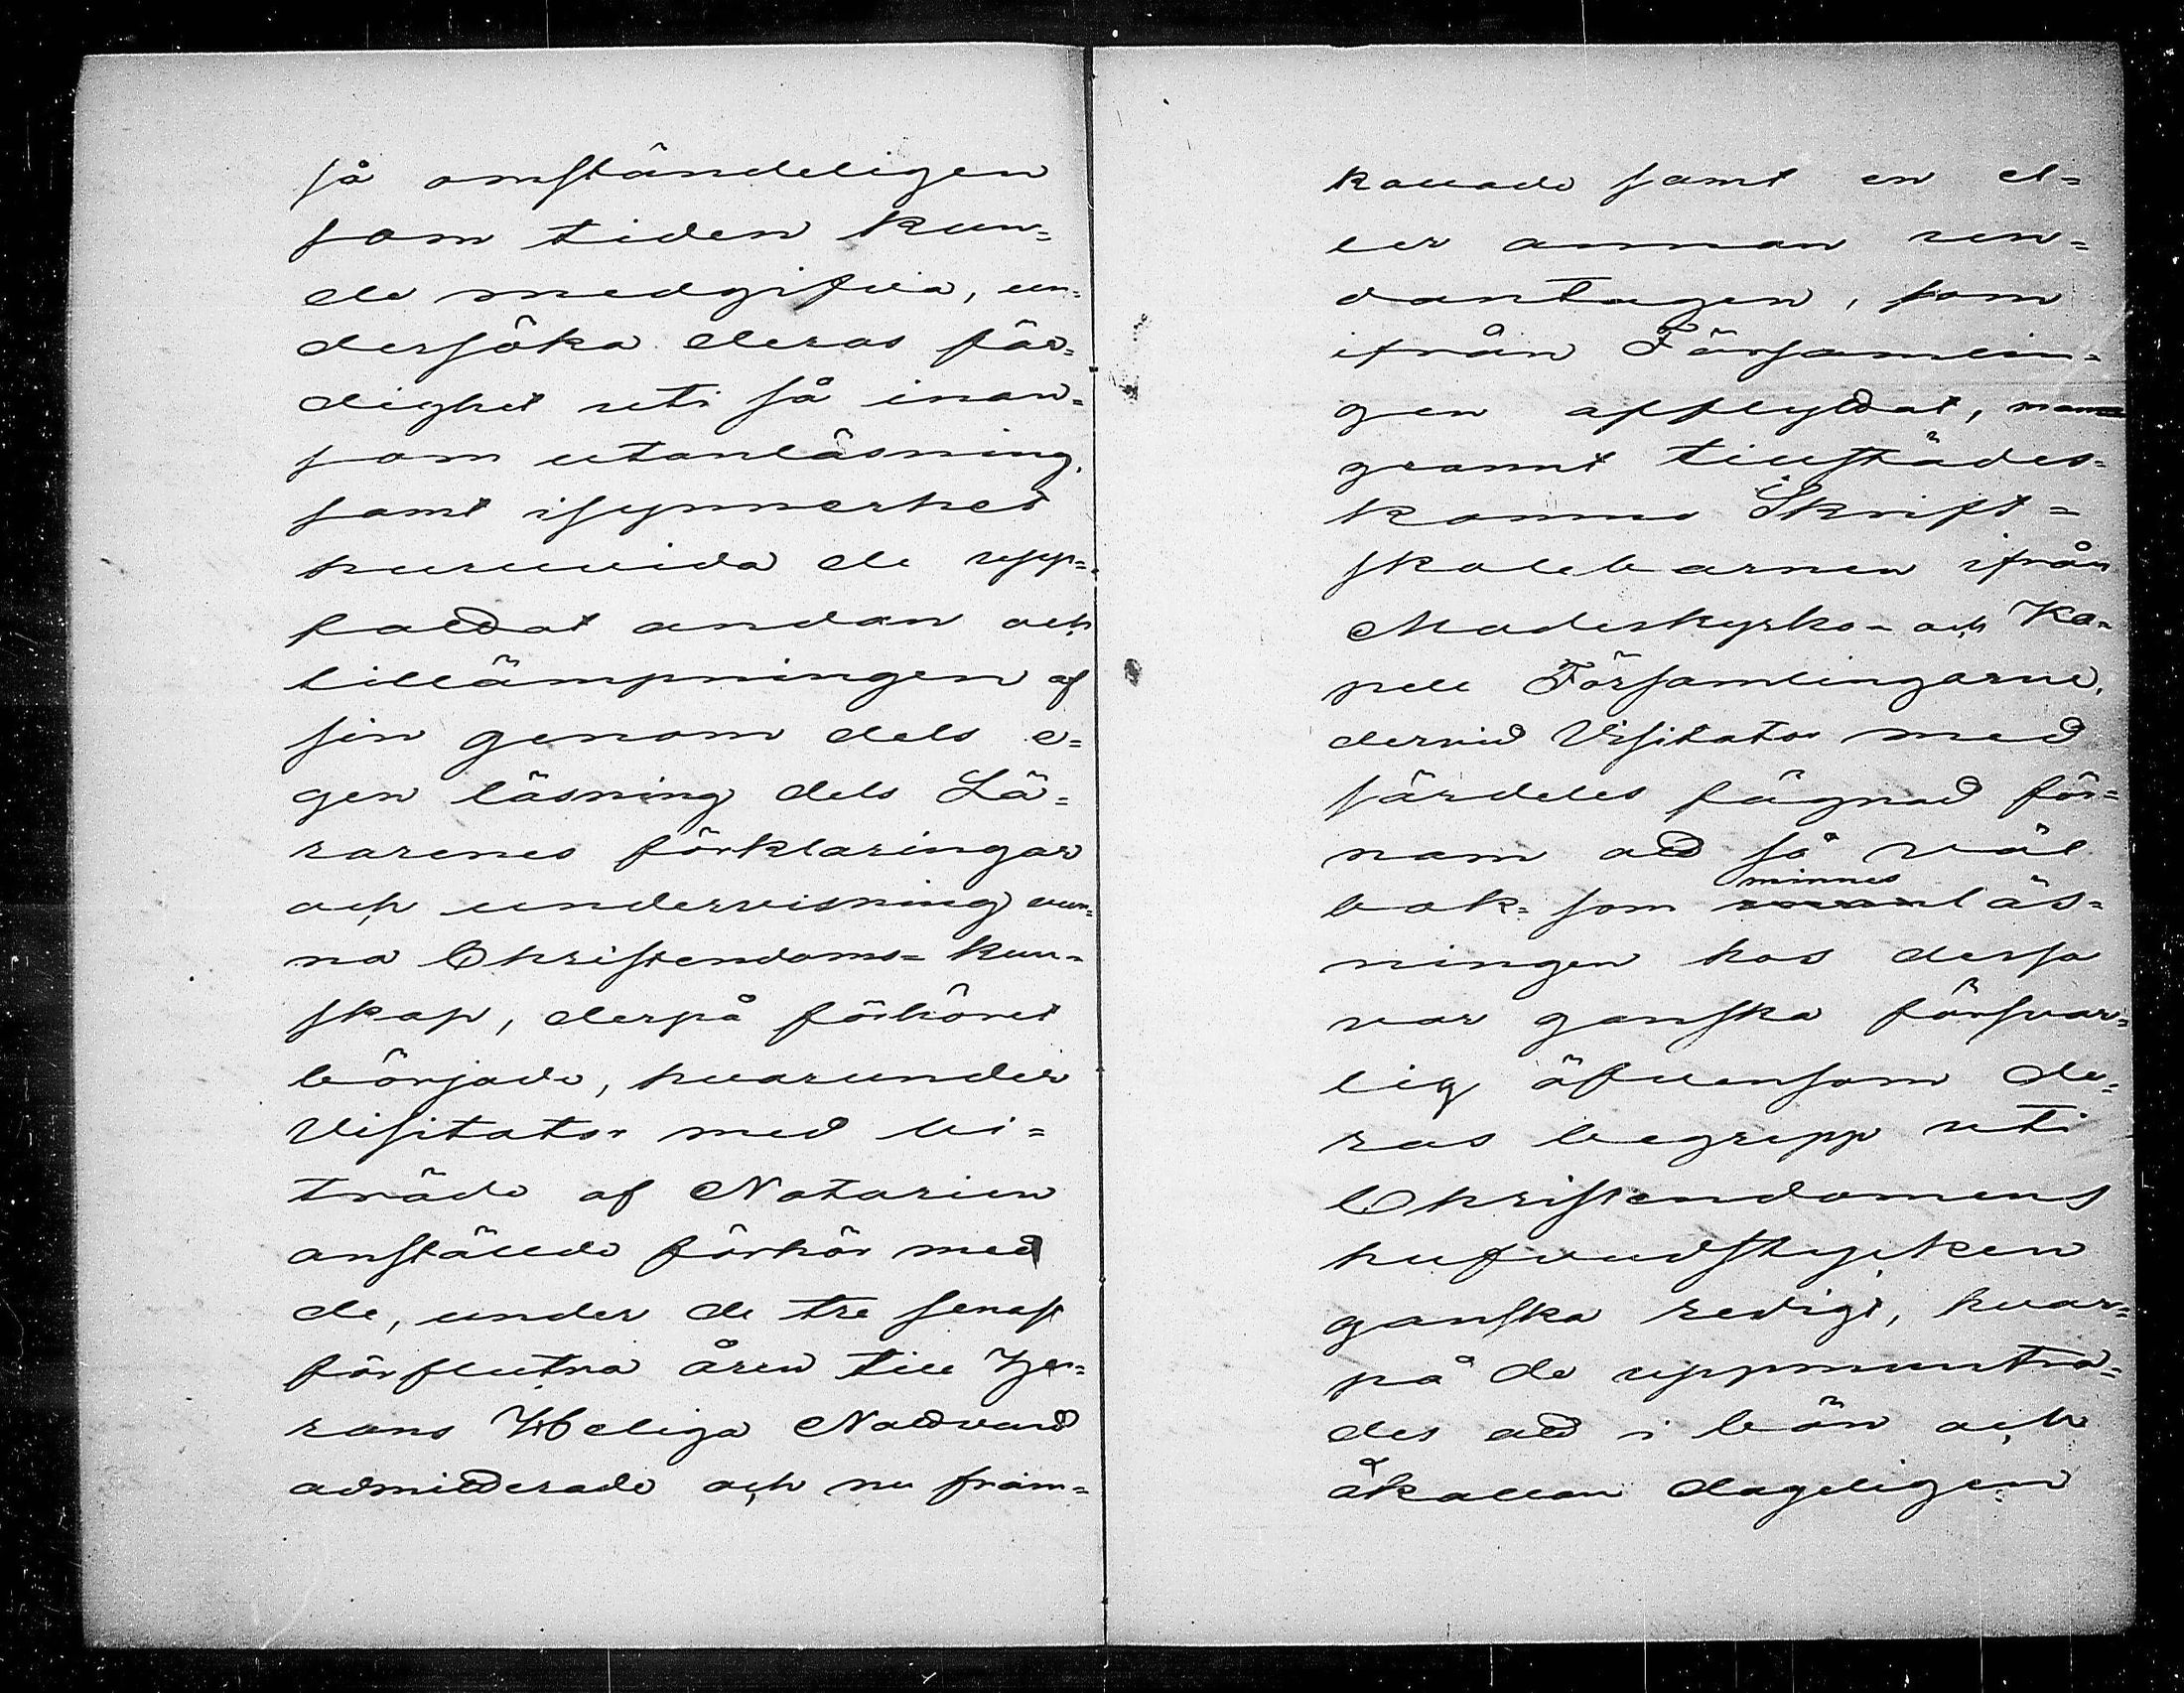 så omständeligen
som tiden kun=
de medgifva, un=
dersöka deras fär=
dighet uti så inan=
som utanläsning,
samt isynnerhet
huruvida de upp=
fattat andan och
tillämpningen af
sin genom dels e=
gen läsning dels Lä=
rarenes förklaringar
och undervisning vun=
na Christendoms= kun=
skap, derpå förhöret
började, hvarunder
Visitator med bi=
träde af Notarien
anstälde förhör med
de, under de tre senast
förflutna åren till Her=
rans Heliga Nattvard
admitterade och nu främ=
kallade samt en el=
ler annan un=
dantagen, som
ifrån Församlin=
gen afflyttat, man
grannt tillstädes=
komne Skrift=
skolebarnen ifrån
Moderkyrko= och Ka=
pell Församlingarne,
dervid Visitator med
särdeles fägnad för=
nam att så väl
bok= som minnesläs=
ningen hos dessa
var ganska försvar=
lig äfvensom de=
ras begrepp uti
Christendomens
hufvudstycken
ganska redigt, hvar=
på de uppmuntra=
des att i bön och
åkallan dageligen